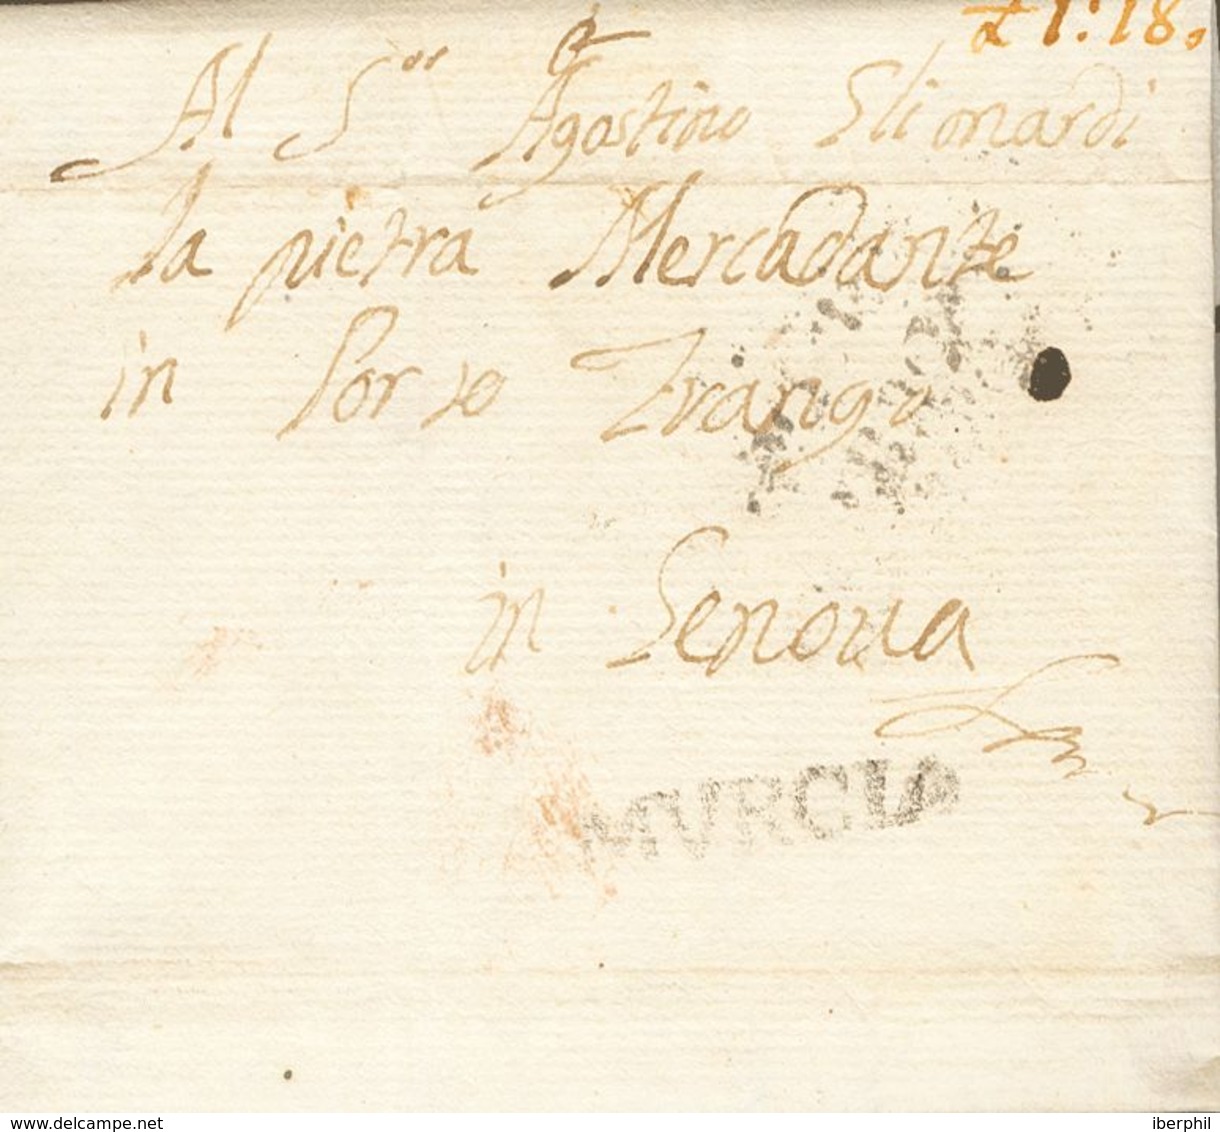 £ 1:18.
Al S.or Agostino Glionardi
la pietra Mercadante
in Porto
in Genova
MVRGIA
delcampe.net
iberphil